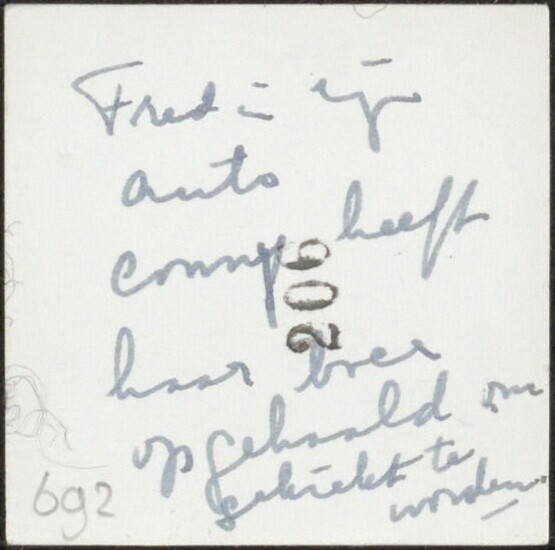 Fred in zijn
auto
conny heeft
206
haar broer
opgehaald om
gekiekt te
worden
692